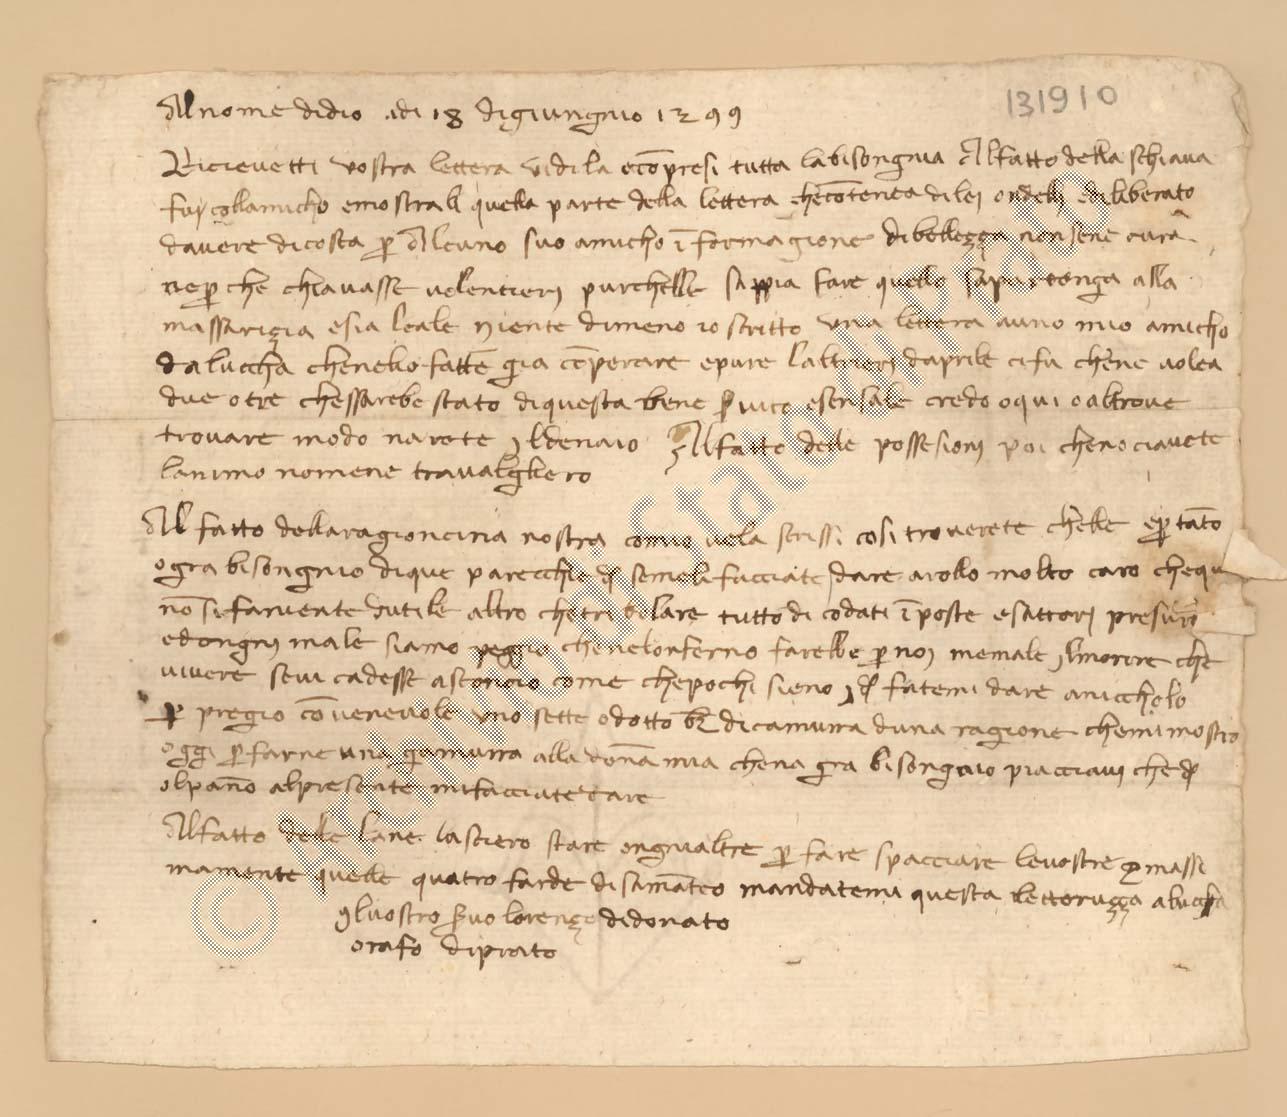 131910
Al nome didio adi 18 digiungnio 1399
Ricievetti vostra lettera vidila e cōpresi tutta labisongnia Alfatto della schiava
fuj collamicho emostrali quella parte della lettera chēcōtenea di lej ondelj ediliberato
davere di costa ꝑ Alcuno suo amicho īformagione di bellezza nonsene curā
neꝑche chiavasse volentierj purchelle sappia fare quello sapartenga alla
massarizia esia leale Niente dimeno io scritto una lettera auno mio amicho
da luccha chenelo fatte gia cōperare epure laltrierj daprile cifu chēne volea
due otre chessarebe stato diquesta bene ꝑvico esensale credo oqui oaltrove
trovare modo narete jldenaio Alfatto delle possesionj poi chenociavete
lanimo nomene travalgliero
Al fatto dellaragioncina nostra comio vela scrissi cosi troverete chelle eꝑtāto
ogra bisongnio dique parecchie ꝑ semeli facciate dare arollo molto caro chequi
nō si fa niente dutile altro chetribolare tutto di codati īposte esattorj presura
edongnj male siamo peggio chenelonferno farebbe ꝑnoj memale jlmorire che
vivere sevi cadesse asconcio come chepochi sieno fatemi dare aniccholo
ꝑ pregio cōvenevole uno sette odotto bꝛ di camurra duna ragione chemimostro
oggi ꝑfarne una gamurra alla dōna mia chena gra bisongnio piacciavj che
olpano alpresente mifacciate dare
Alfatto delle lane lasciero stare ongnialtre ꝑ fare spacciare levostre masse
mamente quelle quatro farde di samāteo mandatemi questa letteruzza aluccha
jlvostro ꝑvo lorenzo didonato
orafo diprato
© Archivio di Stato di Prato